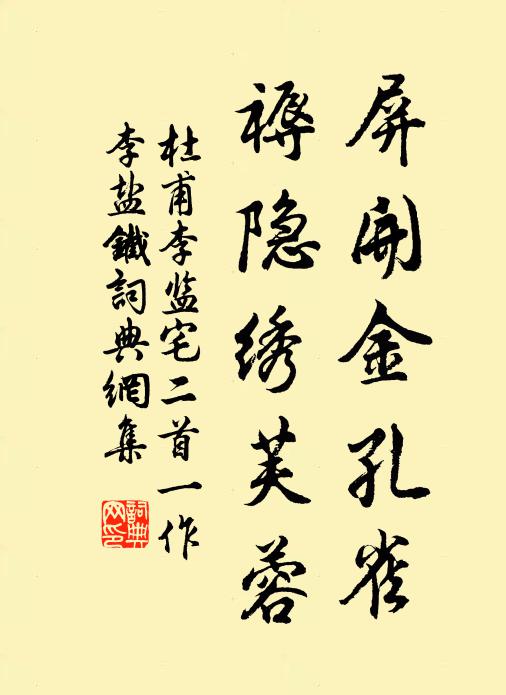 屏開金孔雀
褥隐绣芙蓉
杜甫李监宅二首一作
李盐鐵詞典網集
詞典网印